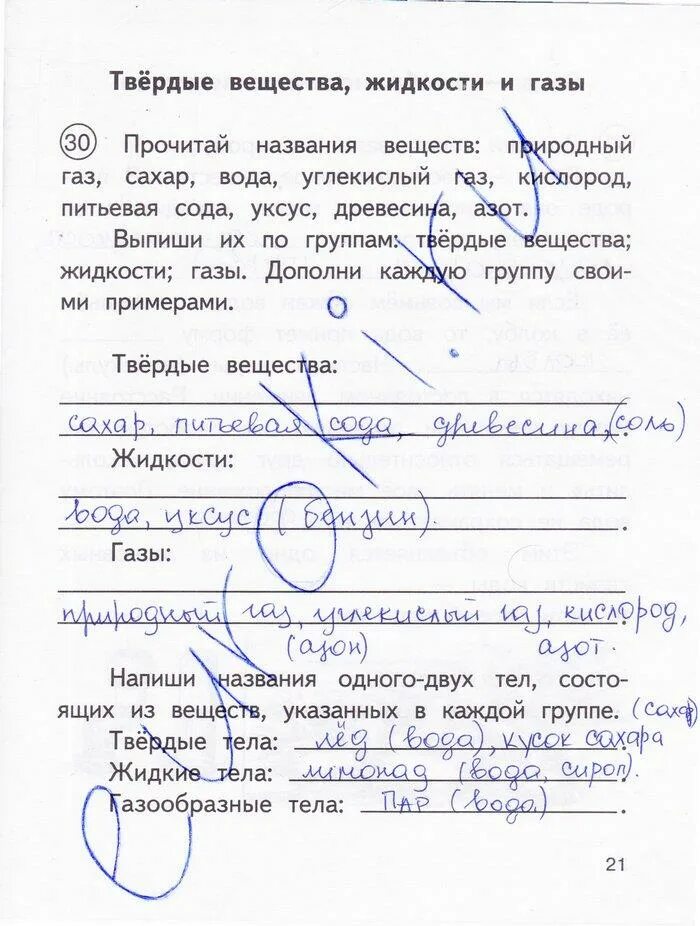 Твёрдые вещества, жидкости и газы
30 Прочитай названия веществ: природный
газ, сахар, вода, углекислый газ, кислород,
питьевая сода, уксус, древесина, азот.
Выпиши их по группам: твёрдые вещества;
жидкости; газы. Дополни каждую группу свои-
ми примерами.
Твёрдые вещества:
сахар, питьевая сода, древесина, (соль)
Жидкости:
вода, уксус (бензин)
Газы:
природный газ, углекислый газ, кислород,
(азон) азот.
Напиши названия одного-двух тел, состо-
ящих из веществ, указанных в каждой группе. (сахар)
Твёрдые тела: лёд (вода), кусок сахара
Жидкие тела: лимонад (вода, сироп).
Газообразные тела: ПАР (вода).
21